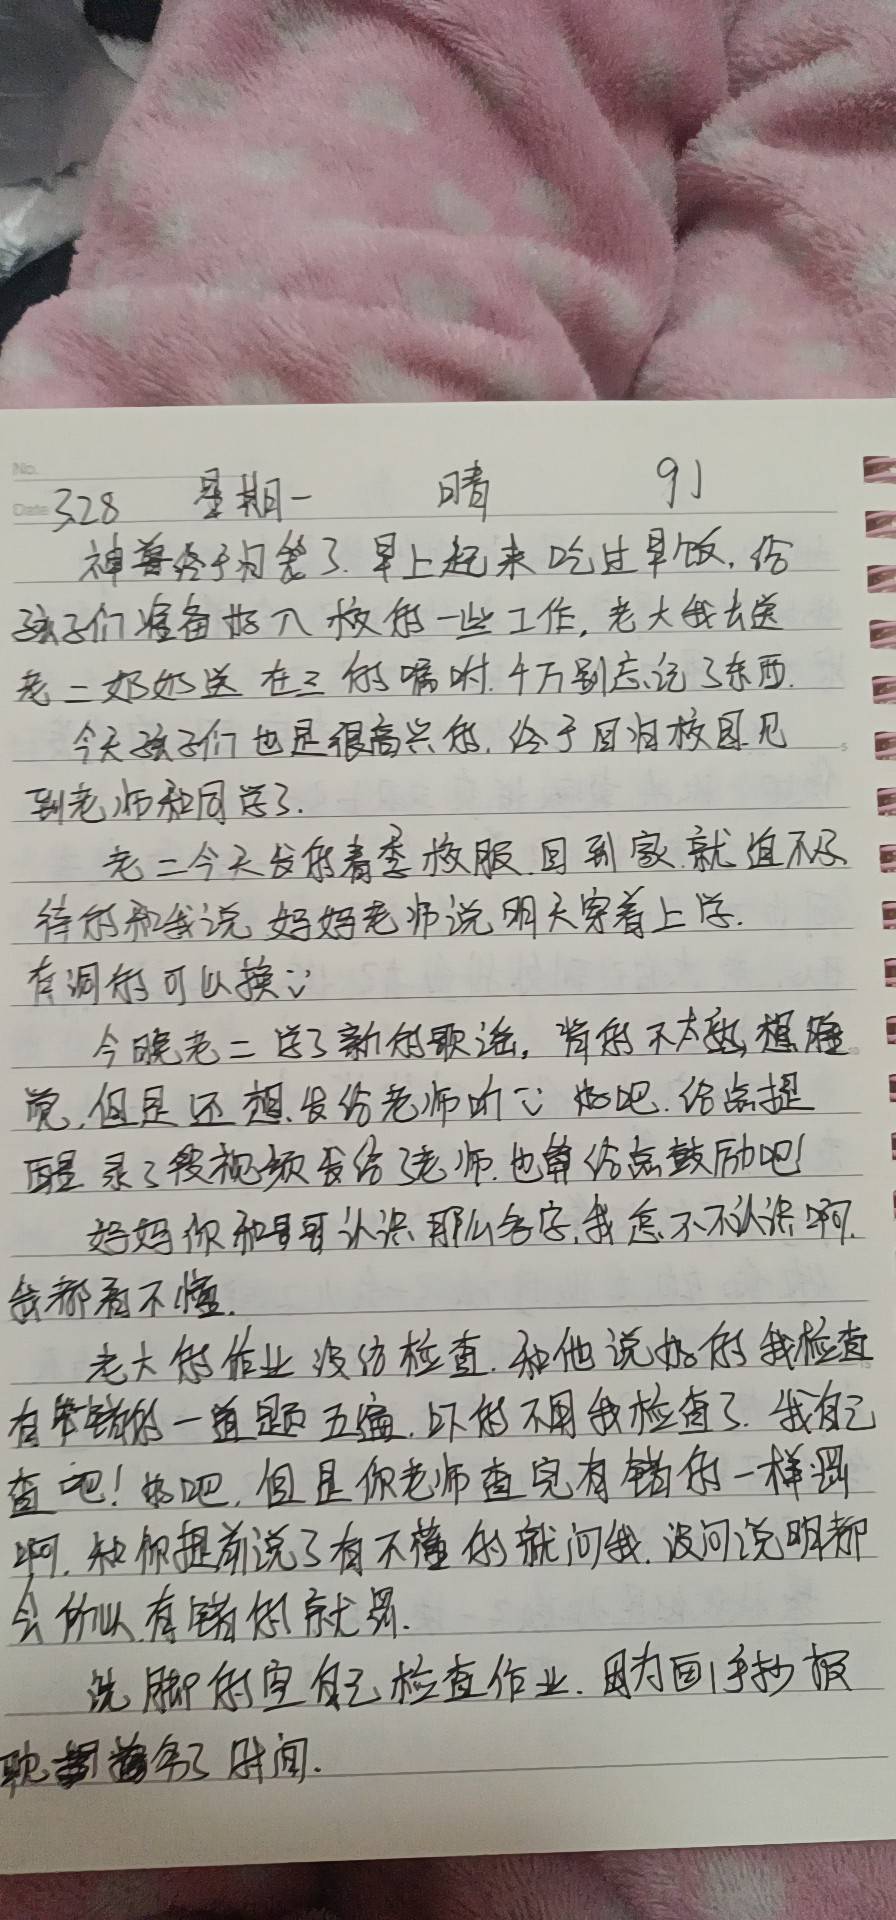 No.
Date 3.28 星期一 晴 91
神兽终于归笼了.早上起来吃过早饭,给
孩子们准备好入校的一些工作,老大我去送
老二奶奶送 在三的嘱咐.千万别忘记了东西.
今天孩子们也是很高兴的,终于回归校园见
到老师和同学了.
老二今天发的春季校服.回到家.就迫不及
待的和我说 妈妈老师说明天穿着上学.
有洞的可以换
今晚老二学了新的歌谣,背的不太熟,想睡
觉,但是还想发给老师听 好吧.给点提
醒录了段视频发给了老师.也算给点鼓励吧!
妈妈你和哥哥认识那么多字,我怎不不认识啊.
我都看不懂.
老大的作业没给检查.和他说好的我检查
有错的一道题五遍.吓的不用我检查了.我自己
查吧!好吧,但是你老师查完有错的一样罚
啊.和你提前说了有不懂的就问我.没问说明都
会所以有错的就罚.
洗脚的空自己检查作业.因为画手抄报
耽多了时间.